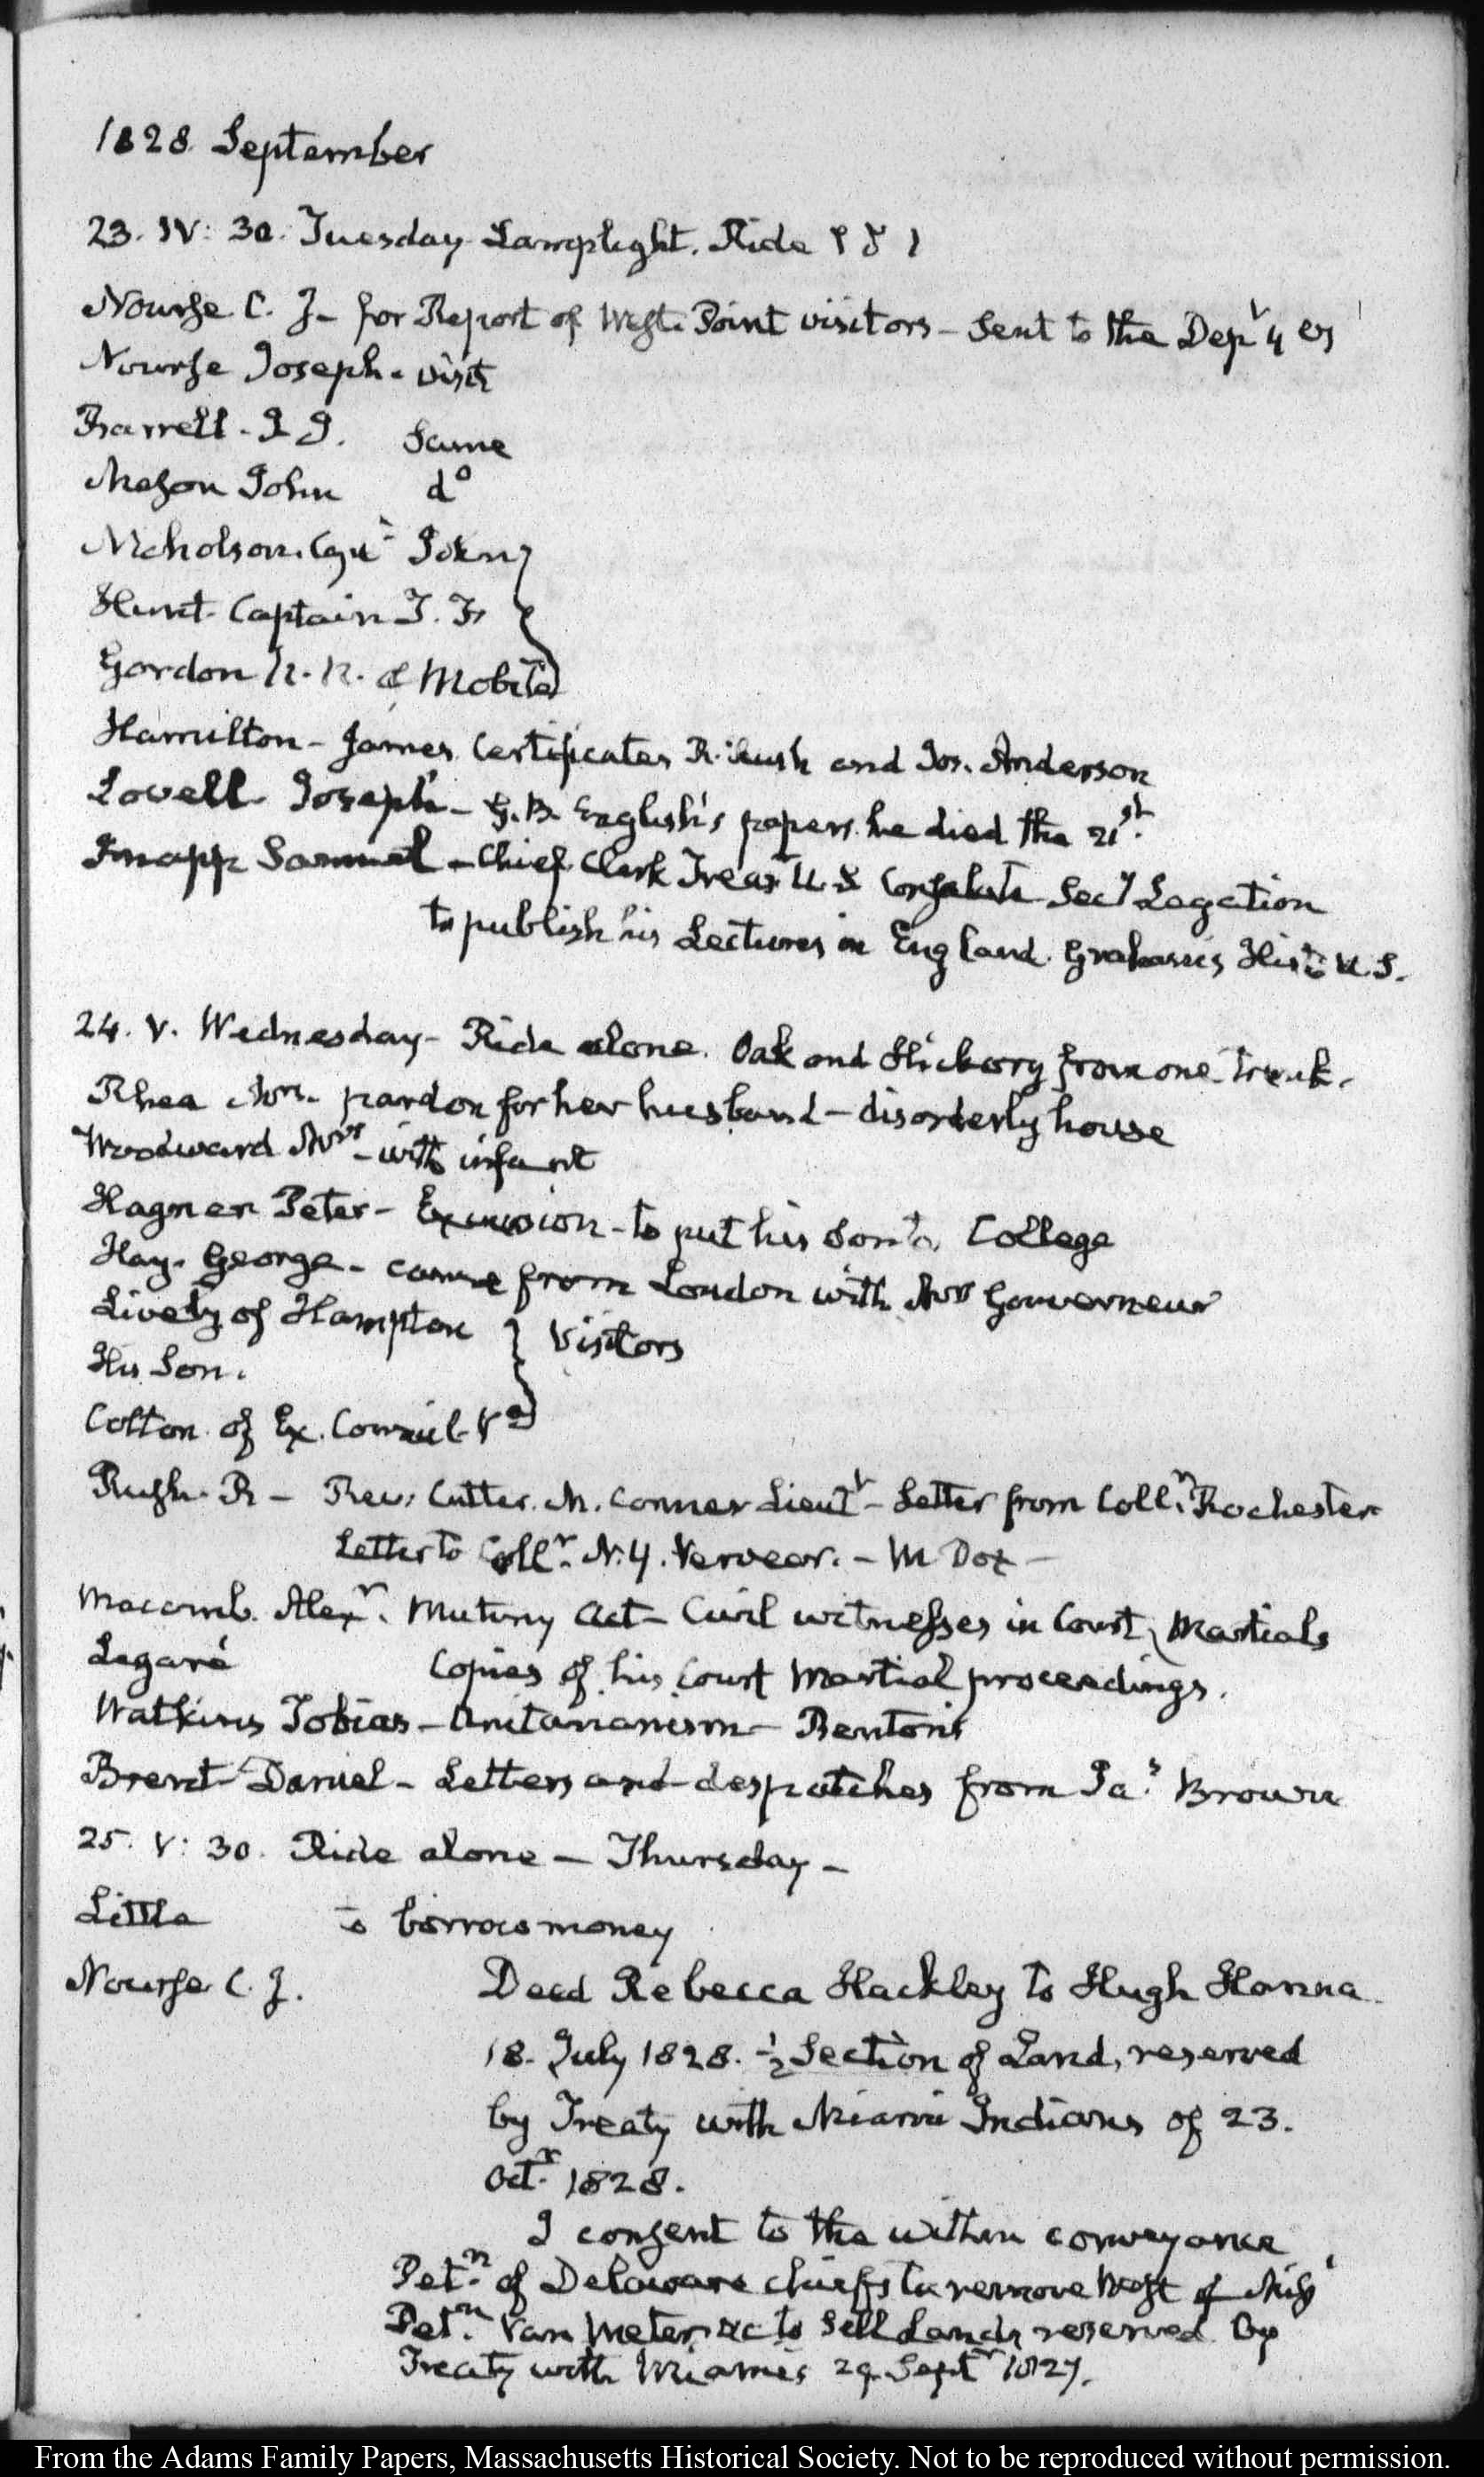 1828. September
23. IV: 30. Tuesday Lamplight. Ride
Nourse C. J– for Report of West. Point visitors – sent to the Dep
Nourse Joseph – visit
Barrell – G G. Same
Mason John do
Nicholson. Capt. John
Hunt Captain T. F.
Gordon of Mobile
Hamilton – James. Certificates R. Rush and Jos. Anderson
Lovell Joseph – G. B. English's papers. he died the 21st.
Knapp Samuel – Chief Clerk Treasy U.S Consulate Secy Legation
to publish his Lectures in England. Graham's Hist. U. S.
24. V. Wednesday – Ride alone. Oak and Hickory from one trunk.
Rhea Mrs. pardon for her husband – disorderly house
Woodward Mrs – with infant
Hagner Peter – Excursion – to put his Son to College
Hay. George – came from London with Mrs Gouverneur
Lively of Hampton Visitors
His Son.
Colton of Ex. Council Va
Rush. R – Rev: Cutter. M. Conner Lieut – Letter from Coll. Rochester
Letter to Collr. N. Y. Verveer. – M Dox –
Macomb. Alexr. Mutiny Act – Civil witnesses in Court Martials
Legaré Copies of his Court Martial proceedings.
Watkins Tobias – Unitarianism –
Brent Daniel – Letters and despatches from Jas. Brown
25. V: 30. Ride alone – Thursday –
Little to borrow money
Nourse C. J. Deed Rebecca Hackley to Hugh Hanna
18. July 1828. ½ Section of Land, reserved
by Treaty with Miami Indians of 23.
Octr. 1828.
I consent to the within conveyance
Petn. of Delaware chiefs to remove West of
Petn. Van Meter &c to sell Lands reserved by
Treaty with Miamies 29. Septr 1827.
From the Adams Family Papers, Massachusetts Historical Society. Not to be reproduced without permission.